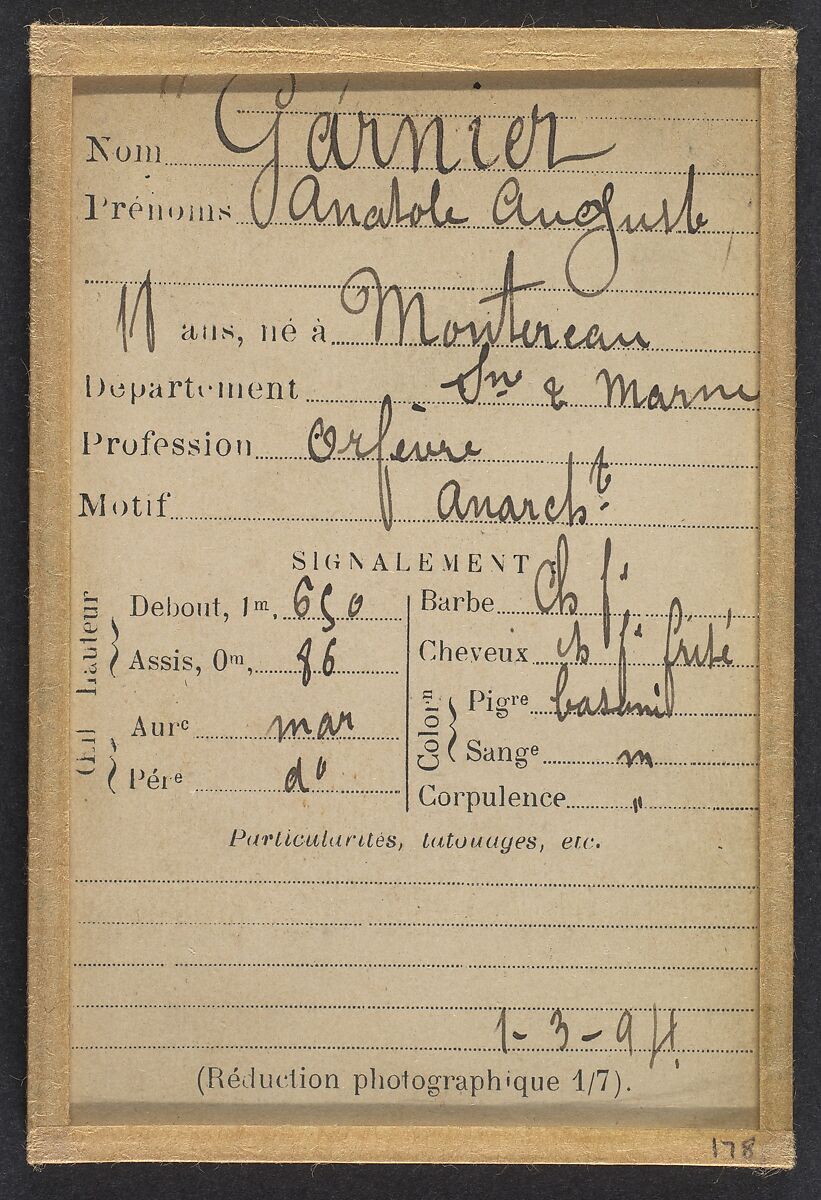 Nom Garnier
Prénoms Anatole Auguste
ans, né à Montereau
Département Sne & Marne
Profession Orfèvre
Motif Anarchte
SIGNALEMENT
Hauteur
Debout, 1m, 650
Assis, 0m, 86
Œil
Aure mar
Pére do
Barbe Ch f
Cheveux ch f frisé
Colorn
Pigre
Sange m
Corpulence "
Particularités, tatouages, etc.
1-3-94
(Réduction photographique 1/7).
178